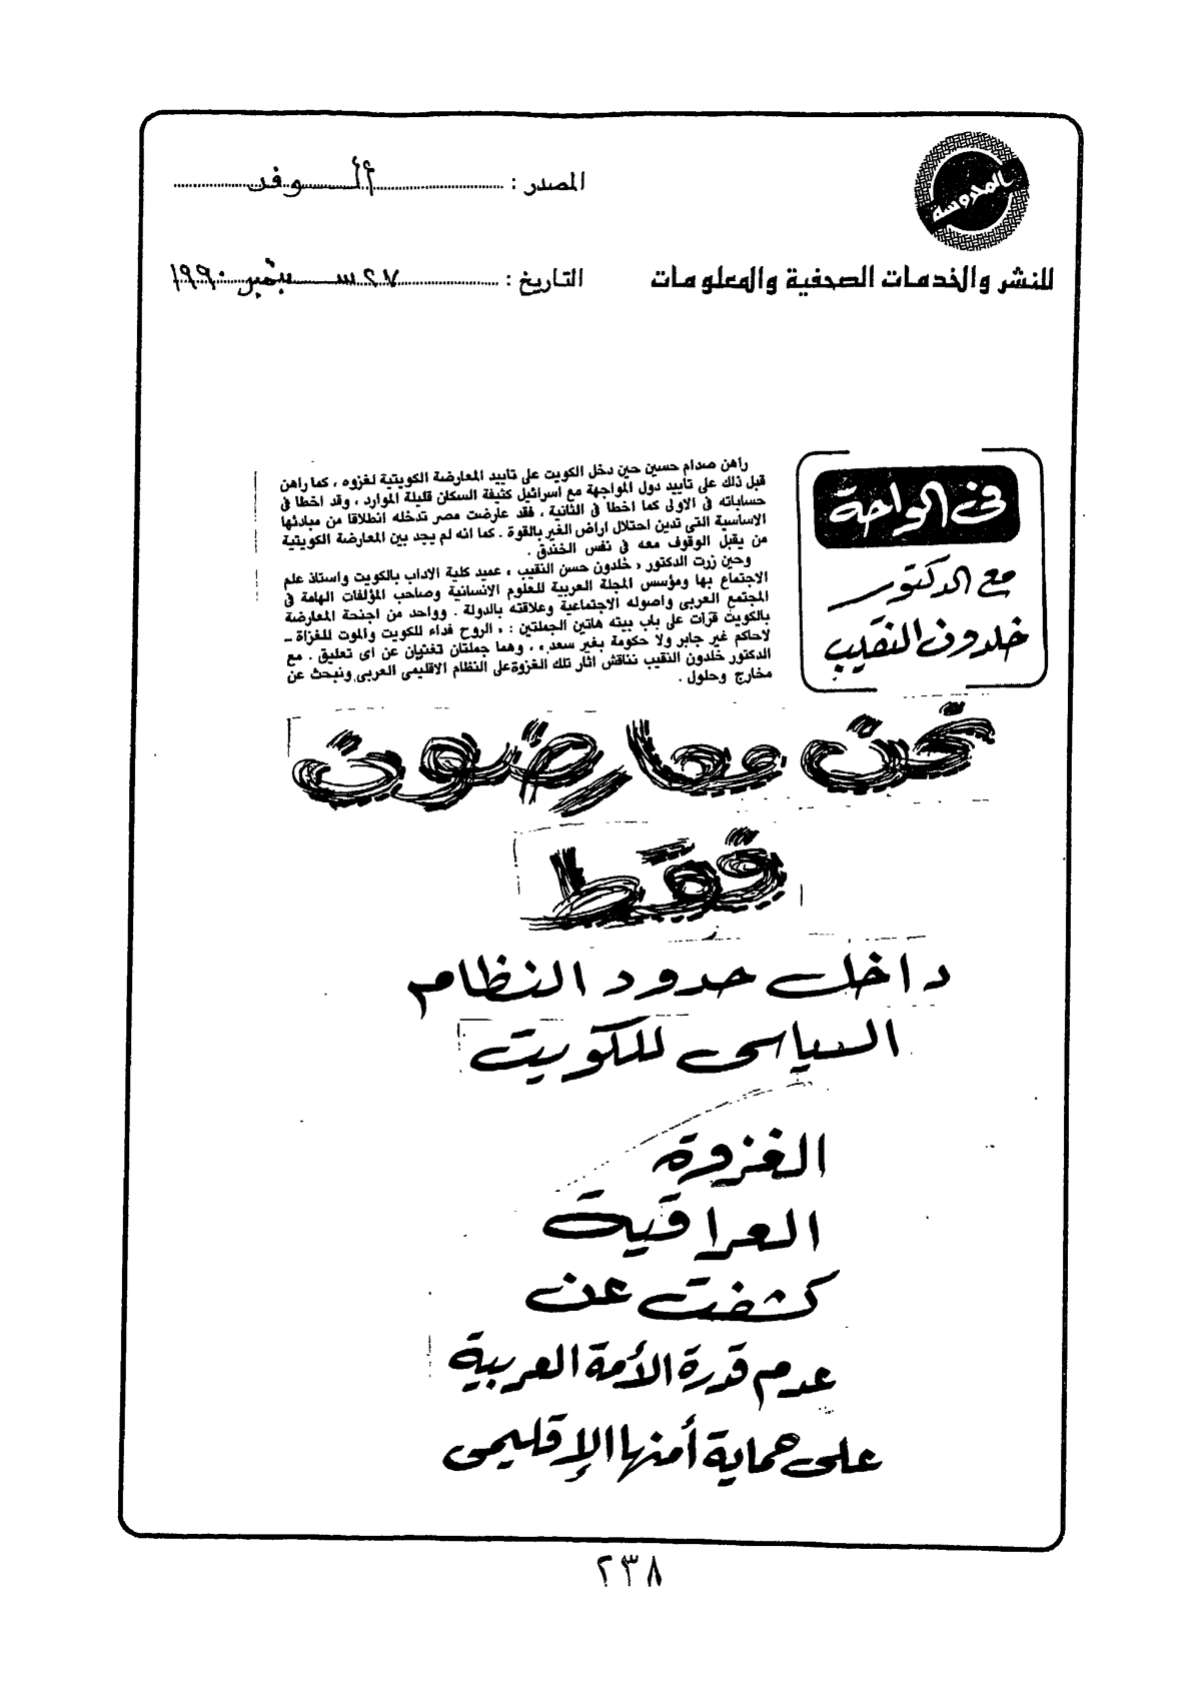 المحروسة
للنشر والخدمات الصحفية والمعلومات
المصدر : الـــوفد
التاريخ : ٢٧ ســـبتمبر ١٩٩٠
فى الواحة
مع الدكتور
خلدون النقيب
راهن صدام حسين حين دخل الكويت على تاييد المعارضة الكويتية لغزوه ، كما راهن
قبل ذلك على تاييد دول المواجهة مع اسرائيل كثيفة السكان قليلة الموارد ، وقد اخطا فى
حساباته فى الاولى كما اخطا فى الثانية ، فقد عارضت مصر تدخله انطلاقا من مبادئها
الاساسية التى تدين احتلال اراض الغير بالقوة . كما انه لم يجد بين المعارضة الكويتية
من يقبل الوقوف معه فى نفس الخندق .
وحين زرت الدكتور « خلدون حسن النقيب ، عميد كلية الاداب بالكويت واستاذ علم
الاجتماع بها ومؤسس المجلة العربية للعلوم الانسانية وصاحب المؤلفات الهامة فى
المجتمع العربى واصوله الاجتماعية وعلاقته بالدولة . وواحد من اجنحة المعارضة
بالكويت قرات على باب بيته هاتين الجملتين : « الروح فداء للكويت والموت للغزاة ــ
لاحاكم غير جابر ولا حكومة بغير سعد » ، وهما جملتان تغنيان عن اى تعليق . مع
الدكتور خلدون النقيب نناقش اثار تلك الغزوة على النظام الاقليمى العربى ونبحث عن
مخارج وحلول .
نحن معارضون
فقط
داخل حدود النظام
السياسى للكويت
الغزوة
العراقية
كشفت عن
عدم قدرة الأمة العربية
على حماية أمنها الإقليمى
٢٣٨